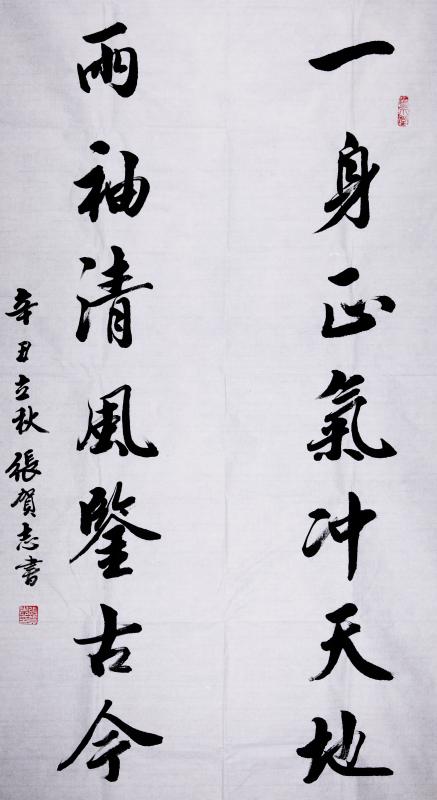 一身正氣冲天地
兩袖清風鑒古今
辛丑立秋張賀志書